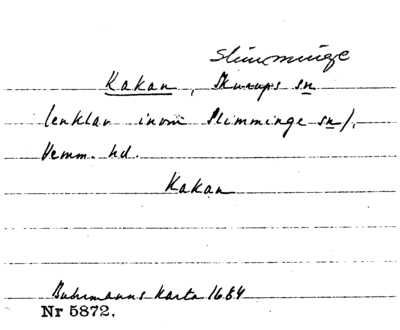 Slimminge
Kakan, Skurups sn
(enklav inom Slimminge sn).
Vemm. hd.
Kakan
Buhrmanns karta 1684
Nr 5872.